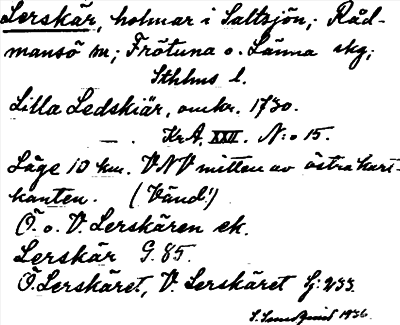 Lerskär, holmar i Saltsjön, Råd-
mansö sn; Frötuna o. Länna skg;
Sthlms l.
Lilla Ledskiär, omkr. 1730.
— . KrA, XXII. N:o 15.
Läge 10 km. VNV mitten av östra kart-
kanten. (Vänd!)
Ö. o. V. Lerskären ek.
Lerskär G. 85.
Ö. Lerskäret, V. Lerskäret Gj: 233.
1936.